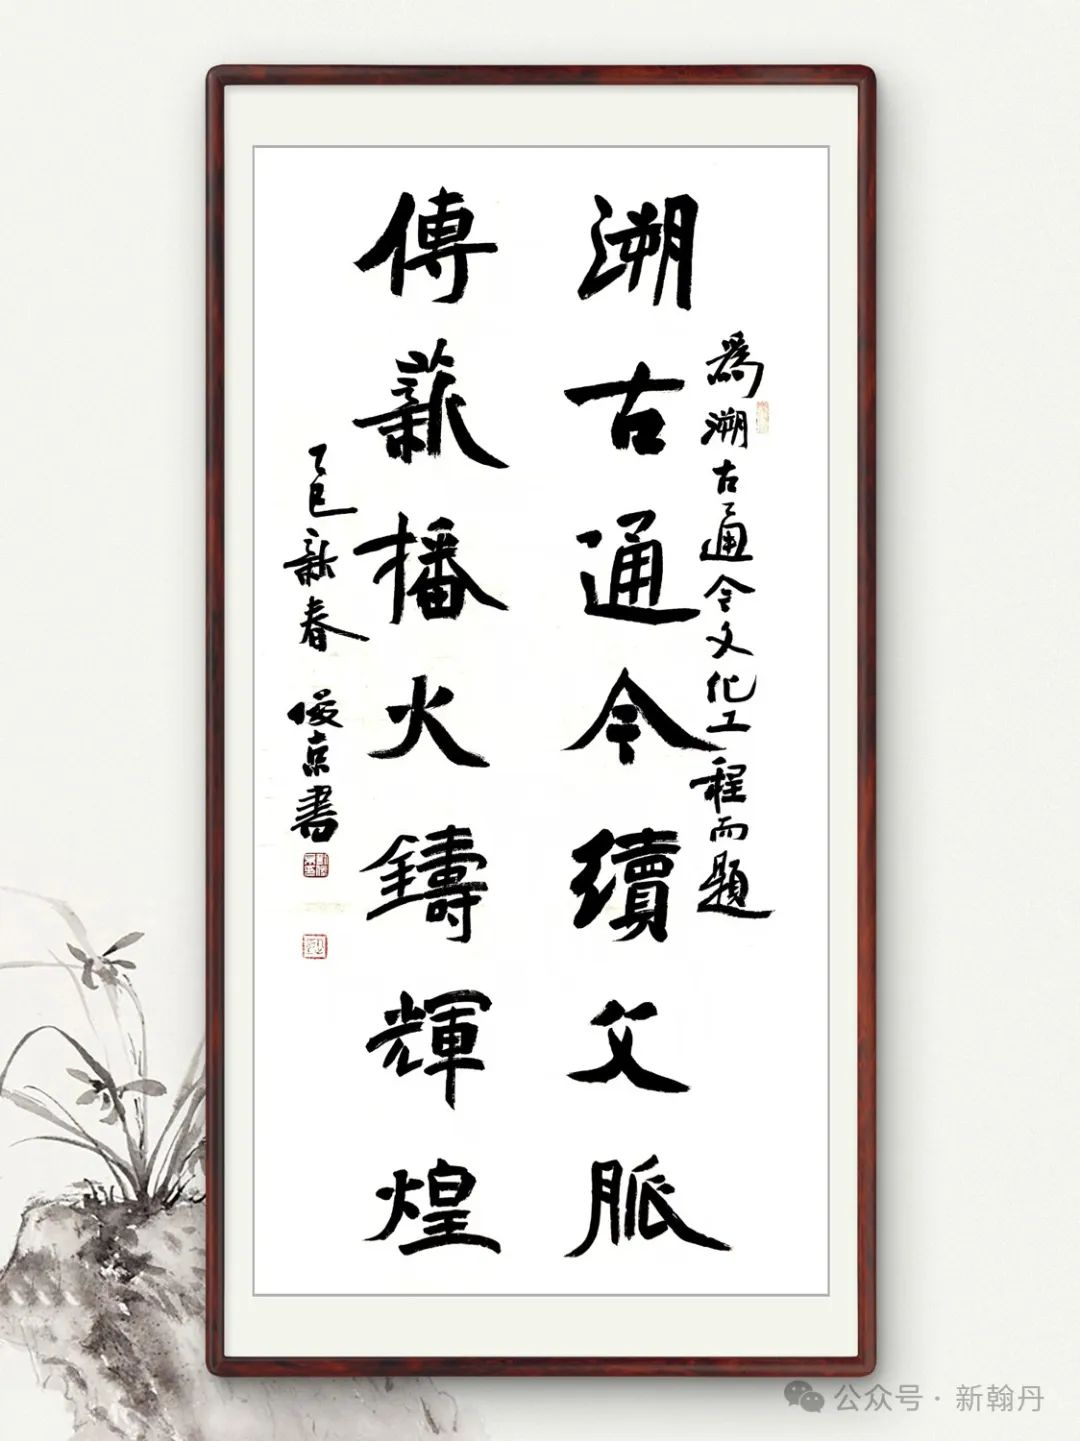 為溯古通今文化工程而題
溯古通今續文脈
傳薪播火鑄輝煌
乙巳新春 俊京書
公众号 · 新翰丹